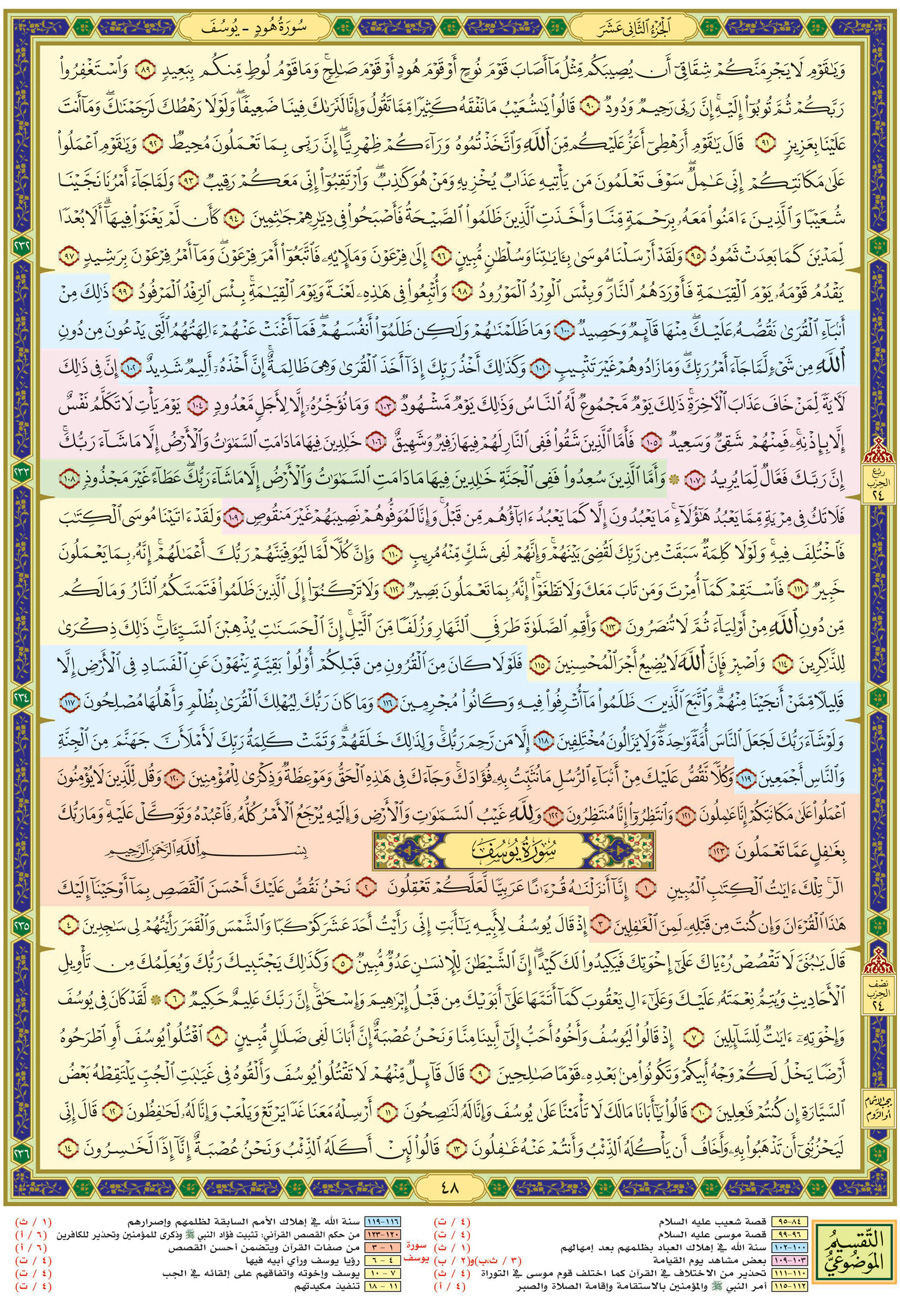 الجزء الثاني عشر
سورة هود - يوسف
وَيَٰقَوْمِ لَا يَجْرِمَنَّكُمْ شِقَاقِىٓ أَن يُصِيبَكُم مِّثْلُ مَآ أَصَابَ قَوْمَ نُوحٍ أَوْ قَوْمَ هُودٍ أَوْ قَوْمَ صَٰلِحٍ ۚ وَمَا قَوْمُ لُوطٍ مِّنكُم بِبَعِيدٍ ٨٩ وَٱسْتَغْفِرُوا۟
رَبَّكُمْ ثُمَّ تُوبُوٓا۟ إِلَيْهِ ۚ إِنَّ رَبِّى رَحِيمٌ وَدُودٌ ٩٠ قَالُوا۟ يَٰشُعَيْبُ مَا نَفْقَهُ كَثِيرًا مِّمَّا تَقُولُ وَإِنَّا لَنَرَىٰكَ فِينَا ضَعِيفًا ۖ وَلَوْلَا رَهْطُكَ لَرَجَمْنَٰكَ ۖ وَمَآ أَنتَ
عَلَيْنَا بِعَزِيزٍ ٩١ قَالَ يَٰقَوْمِ أَرَهْطِىٓ أَعَزُّ عَلَيْكُم مِّنَ ٱللَّهِ وَٱتَّخَذْتُمُوهُ وَرَآءَكُمْ ظِهْرِيًّا ۖ إِنَّ رَبِّى بِمَا تَعْمَلُونَ مُحِيطٌ ٩٢ وَيَٰقَوْمِ ٱعْمَلُوا۟
عَلَىٰ مَكَانَتِكُمْ إِنِّى عَٰمِلٌ ۖ سَوْفَ تَعْلَمُونَ مَن يَأْتِيهِ عَذَابٌ يُخْزِيهِ وَمَنْ هُوَ كَٰذِبٌ ۖ وَٱرْتَقِبُوٓا۟ إِنِّى مَعَكُمْ رَقِيبٌ ٩٣ وَلَمَّا جَآءَ أَمْرُنَا نَجَّيْنَا
شُعَيْبًا وَٱلَّذِينَ ءَامَنُوا۟ مَعَهُۥ بِرَحْمَةٍ مِّنَّا وَأَخَذَتِ ٱلَّذِينَ ظَلَمُوا۟ ٱلصَّيْحَةُ فَأَصْبَحُوا۟ فِى دِيَٰرِهِمْ جَٰثِمِينَ ٩٤ كَأَن لَّمْ يَغْنَوْا۟ فِيهَآ ۗ أَلَا بُعْدًا
لِّمَدْيَنَ كَمَا بَعِدَتْ ثَمُودُ ٩٥ وَلَقَدْ أَرْسَلْنَا مُوسَىٰ بِـَٔايَٰتِنَا وَسُلْطَٰنٍ مُّبِينٍ ٩٦ إِلَىٰ فِرْعَوْنَ وَمَلَإِي۟هِۦ فَٱتَّبَعُوٓا۟ أَمْرَ فِرْعَوْنَ ۖ وَمَآ أَمْرُ فِرْعَوْنَ بِرَشِيدٍ ٩٧
يَقْدُمُ قَوْمَهُۥ يَوْمَ ٱلْقِيَٰمَةِ فَأَوْرَدَهُمُ ٱلنَّارَ ۖ وَبِئْسَ ٱلْوِرْدُ ٱلْمَوْرُودُ ٩٨ وَأُتْبِعُوا۟ فِى هَٰذِهِۦ لَعْنَةً وَيَوْمَ ٱلْقِيَٰمَةِ ۚ بِئْسَ ٱلرِّفْدُ ٱلْمَرْفُودُ ٩٩ ذَٰلِكَ مِنْ
أَنۢبَآءِ ٱلْقُرَىٰ نَقُصُّهُۥ عَلَيْكَ ۖ مِنْهَا قَآئِمٌ وَحَصِيدٌ ١٠٠ وَمَا ظَلَمْنَٰهُمْ وَلَٰكِن ظَلَمُوٓا۟ أَنفُسَهُمْ ۖ فَمَآ أَغْنَتْ عَنْهُمْ ءَالِهَتُهُمُ ٱلَّتِى يَدْعُونَ مِن دُونِ
ٱللَّهِ مِن شَىْءٍ لَّمَّا جَآءَ أَمْرُ رَبِّكَ ۖ وَمَا زَادُوهُمْ غَيْرَ تَتْبِيبٍ ١٠١ وَكَذَٰلِكَ أَخْذُ رَبِّكَ إِذَآ أَخَذَ ٱلْقُرَىٰ وَهِىَ ظَٰلِمَةٌ ۚ إِنَّ أَخْذَهُۥٓ أَلِيمٌ شَدِيدٌ ١٠٢ إِنَّ فِى ذَٰلِكَ
لَءَايَةً لِّمَنْ خَافَ عَذَابَ ٱلْءَاخِرَةِ ۚ ذَٰلِكَ يَوْمٌ مَّجْمُوعٌ لَّهُ ٱلنَّاسُ وَذَٰلِكَ يَوْمٌ مَّشْهُودٌ ١٠٣ وَمَا نُؤَخِّرُهُۥٓ إِلَّا لِأَجَلٍ مَّعْدُودٍ ١٠٤ يَوْمَ يَأْتِ لَا تَكَلَّمُ نَفْسٌ
إِلَّا بِإِذْنِهِۦ ۚ فَمِنْهُمْ شَقِىٌّ وَسَعِيدٌ ١٠٥ فَأَمَّا ٱلَّذِينَ شَقُوا۟ فَفِى ٱلنَّارِ لَهُمْ فِيهَا زَفِيرٌ وَشَهِيقٌ ١٠٦ خَٰلِدِينَ فِيهَا مَا دَامَتِ ٱلسَّمَٰوَٰتُ وَٱلْأَرْضُ إِلَّا مَا شَآءَ رَبُّكَ ۚ
إِنَّ رَبَّكَ فَعَّالٌ لِّمَا يُرِيدُ ١٠٧ ۞ وَأَمَّا ٱلَّذِينَ سُعِدُوا۟ فَفِى ٱلْجَنَّةِ خَٰلِدِينَ فِيهَا مَا دَامَتِ ٱلسَّمَٰوَٰتُ وَٱلْأَرْضُ إِلَّا مَا شَآءَ رَبُّكَ ۖ عَطَآءً غَيْرَ مَجْذُوذٍ ١٠٨
فَلَا تَكُ فِى مِرْيَةٍ مِّمَّا يَعْبُدُ هَٰٓؤُلَآءِ ۚ مَا يَعْبُدُونَ إِلَّا كَمَا يَعْبُدُ ءَابَآؤُهُم مِّن قَبْلُ ۚ وَإِنَّا لَمُوَفُّوهُمْ نَصِيبَهُمْ غَيْرَ مَنقُوصٍ ١٠٩ وَلَقَدْ ءَاتَيْنَا مُوسَى ٱلْكِتَٰبَ
فَٱخْتُلِفَ فِيهِ ۚ وَلَوْلَا كَلِمَةٌ سَبَقَتْ مِن رَّبِّكَ لَقُضِىَ بَيْنَهُمْ ۚ وَإِنَّهُمْ لَفِى شَكٍّ مِّنْهُ مُرِيبٍ ١١٠ وَإِنَّ كُلًّا لَّمَّا لَيُوَفِّيَنَّهُمْ رَبُّكَ أَعْمَٰلَهُمْ ۚ إِنَّهُۥ بِمَا يَعْمَلُونَ
خَبِيرٌ ١١١ فَٱسْتَقِمْ كَمَآ أُمِرْتَ وَمَن تَابَ مَعَكَ وَلَا تَطْغَوْا۟ ۚ إِنَّهُۥ بِمَا تَعْمَلُونَ بَصِيرٌ ١١٢ وَلَا تَرْكَنُوٓا۟ إِلَى ٱلَّذِينَ ظَلَمُوا۟ فَتَمَسَّكُمُ ٱلنَّارُ وَمَا لَكُم
مِّن دُونِ ٱللَّهِ مِنْ أَوْلِيَآءَ ثُمَّ لَا تُنصَرُونَ ١١٣ وَأَقِمِ ٱلصَّلَوٰةَ طَرَفَىِ ٱلنَّهَارِ وَزُلَفًا مِّنَ ٱلَّيْلِ ۚ إِنَّ ٱلْحَسَنَٰتِ يُذْهِبْنَ ٱلسَّيِّـَٔاتِ ۚ ذَٰلِكَ ذِكْرَىٰ
لِلذَّٰكِرِينَ ١١٤ وَٱصْبِرْ فَإِنَّ ٱللَّهَ لَا يُضِيعُ أَجْرَ ٱلْمُحْسِنِينَ ١١٥ فَلَوْلَا كَانَ مِنَ ٱلْقُرُونِ مِن قَبْلِكُمْ أُو۟لُوا۟ بَقِيَّةٍ يَنْهَوْنَ عَنِ ٱلْفَسَادِ فِى ٱلْأَرْضِ إِلَّا
قَلِيلًا مِّمَّنْ أَنجَيْنَا مِنْهُمْ ۗ وَٱتَّبَعَ ٱلَّذِينَ ظَلَمُوا۟ مَآ أُتْرِفُوا۟ فِيهِ وَكَانُوا۟ مُجْرِمِينَ ١١٦ وَمَا كَانَ رَبُّكَ لِيُهْلِكَ ٱلْقُرَىٰ بِظُلْمٍ وَأَهْلُهَا مُصْلِحُونَ ١١٧
وَلَوْ شَآءَ رَبُّكَ لَجَعَلَ ٱلنَّاسَ أُمَّةً وَٰحِدَةً ۖ وَلَا يَزَالُونَ مُخْتَلِفِينَ ١١٨ إِلَّا مَن رَّحِمَ رَبُّكَ ۚ وَلِذَٰلِكَ خَلَقَهُمْ ۗ وَتَمَّتْ كَلِمَةُ رَبِّكَ لَأَمْلَأَنَّ جَهَنَّمَ مِنَ ٱلْجِنَّةِ
وَٱلنَّاسِ أَجْمَعِينَ ١١٩ وَكُلًّا نَّقُصُّ عَلَيْكَ مِنْ أَنۢبَآءِ ٱلرُّسُلِ مَا نُثَبِّتُ بِهِۦ فُؤَادَكَ ۚ وَجَآءَكَ فِى هَٰذِهِ ٱلْحَقُّ وَمَوْعِظَةٌ وَذِكْرَىٰ لِلْمُؤْمِنِينَ ١٢٠ وَقُل لِّلَّذِينَ لَا يُؤْمِنُونَ
ٱعْمَلُوا۟ عَلَىٰ مَكَانَتِكُمْ إِنَّا عَٰمِلُونَ ١٢١ وَٱنتَظِرُوٓا۟ إِنَّا مُنتَظِرُونَ ١٢٢ وَلِلَّهِ غَيْبُ ٱلسَّمَٰوَٰتِ وَٱلْأَرْضِ وَإِلَيْهِ يُرْجَعُ ٱلْأَمْرُ كُلُّهُۥ فَٱعْبُدْهُ وَتَوَكَّلْ عَلَيْهِ ۚ وَمَا رَبُّكَ
بِغَٰفِلٍ عَمَّا تَعْمَلُونَ ١٢٣ سُورَةُ يُوسُفَ بِسْمِ ٱللَّهِ ٱلرَّحْمَٰنِ ٱلرَّحِيمِ
الٓر ۚ تِلْكَ ءَايَٰتُ ٱلْكِتَٰبِ ٱلْمُبِينِ ١ إِنَّآ أَنزَلْنَٰهُ قُرْءَٰنًا عَرَبِيًّا لَّعَلَّكُمْ تَعْقِلُونَ ٢ نَحْنُ نَقُصُّ عَلَيْكَ أَحْسَنَ ٱلْقَصَصِ بِمَآ أَوْحَيْنَآ إِلَيْكَ
هَٰذَا ٱلْقُرْءَانَ وَإِن كُنتَ مِن قَبْلِهِۦ لَمِنَ ٱلْغَٰفِلِينَ ٣ إِذْ قَالَ يُوسُفُ لِأَبِيهِ يَٰٓأَبَتِ إِنِّى رَأَيْتُ أَحَدَ عَشَرَ كَوْكَبًا وَٱلشَّمْسَ وَٱلْقَمَرَ رَأَيْتُهُمْ لِى سَٰجِدِينَ ٤
قَالَ يَٰبُنَىَّ لَا تَقْصُصْ رُءْيَاكَ عَلَىٰٓ إِخْوَتِكَ فَيَكِيدُوا۟ لَكَ كَيْدًا ۖ إِنَّ ٱلشَّيْطَٰنَ لِلْإِنسَٰنِ عَدُوٌّ مُّبِينٌ ٥ وَكَذَٰلِكَ يَجْتَبِيكَ رَبُّكَ وَيُعَلِّمُكَ مِن تَأْوِيلِ
ٱلْأَحَادِيثِ وَيُتِمُّ نِعْمَتَهُۥ عَلَيْكَ وَعَلَىٰٓ ءَالِ يَعْقُوبَ كَمَآ أَتَمَّهَا عَلَىٰٓ أَبَوَيْكَ مِن قَبْلُ إِبْرَٰهِيمَ وَإِسْحَٰقَ ۚ إِنَّ رَبَّكَ عَلِيمٌ حَكِيمٌ ٦ ۞ لَّقَدْ كَانَ فِى يُوسُفَ
وَإِخْوَتِهِۦٓ ءَايَٰتٌ لِّلسَّآئِلِينَ ٧ إِذْ قَالُوا۟ لَيُوسُفُ وَأَخُوهُ أَحَبُّ إِلَىٰٓ أَبِينَا مِنَّا وَنَحْنُ عُصْبَةٌ إِنَّ أَبَانَا لَفِى ضَلَٰلٍ مُّبِينٍ ٨ ٱقْتُلُوا۟ يُوسُفَ أَوِ ٱطْرَحُوهُ
أَرْضًا يَخْلُ لَكُمْ وَجْهُ أَبِيكُمْ وَتَكُونُوا۟ مِنۢ بَعْدِهِۦ قَوْمًا صَٰلِحِينَ ٩ قَالَ قَآئِلٌ مِّنْهُمْ لَا تَقْتُلُوا۟ يُوسُفَ وَأَلْقُوهُ فِى غَيَٰبَتِ ٱلْجُبِّ يَلْتَقِطْهُ بَعْضُ
ٱلسَّيَّارَةِ إِن كُنتُمْ فَٰعِلِينَ ١٠ قَالُوا۟ يَٰٓأَبَانَا مَا لَكَ لَا تَأْمَ۫نَّا عَلَىٰ يُوسُفَ وَإِنَّا لَهُۥ لَنَٰصِحُونَ ١١ أَرْسِلْهُ مَعَنَا غَدًا يَرْتَعْ وَيَلْعَبْ وَإِنَّا لَهُۥ لَحَٰفِظُونَ ١٢ قَالَ إِنِّى
لَيَحْزُنُنِىٓ أَن تَذْهَبُوا۟ بِهِۦ وَأَخَافُ أَن يَأْكُلَهُ ٱلذِّئْبُ وَأَنتُمْ عَنْهُ غَٰفِلُونَ ١٣ قَالُوا۟ لَئِنْ أَكَلَهُ ٱلذِّئْبُ وَنَحْنُ عُصْبَةٌ إِنَّآ إِذًا لَّخَٰسِرُونَ ١٤
ربع الحزب ٢٤
نصف الحزب ٢٤
٢٣٢
٢٣٣
٢٣٤
٢٣٥
٢٣٦
٤٨
التقسيم الموضوعي
٨٤-٩٥ قصة شعيب عليه السلام (٤ / ت)
٩٦-٩٩ قصة موسى عليه السلام (٤ / ت)
١٠٠-١٠٢ سنة الله في إهلاك العباد بظلمهم بعد إمهالهم (١ / ث)
١٠٣-١٠٩ بعض مشاهد يوم القيامة (٣ / ث،ب)و(٢ / ب)
١١٠-١١١ تحذير من الاختلاف في القرآن كما اختلف قوم موسى في التوراة (٤ / ث)
١١٢-١١٥ أمر النبي ﷺ والمؤمنين بالاستقامة وإقامة الصلاة والصبر (٤ / أ)
١١٦-١١٩ سنة الله في إهلاك الأمم السابقة لظلمهم وإصرارهم (١ / ث)
١٢٠-١٢٣ من حكم القصص القرآني: تثبيت فؤاد النبي ﷺ وذكرى للمؤمنين وتحذير للكافرين (٦ / أ)
سورة يوسف
١ - ٣ من صفات القرآن ويتضمن أحسن القصص (٦ / أ)
٤ - ٦ رؤيا يوسف ورأي أبيه فيها (٤ / ت)
٧ - ١٠ يوسف وإخوته واتفاقهم على إلقائه في الجب (٤ / ت)
١١ - ١٨ تنفيذ مكيدتهم (٤ / ت)